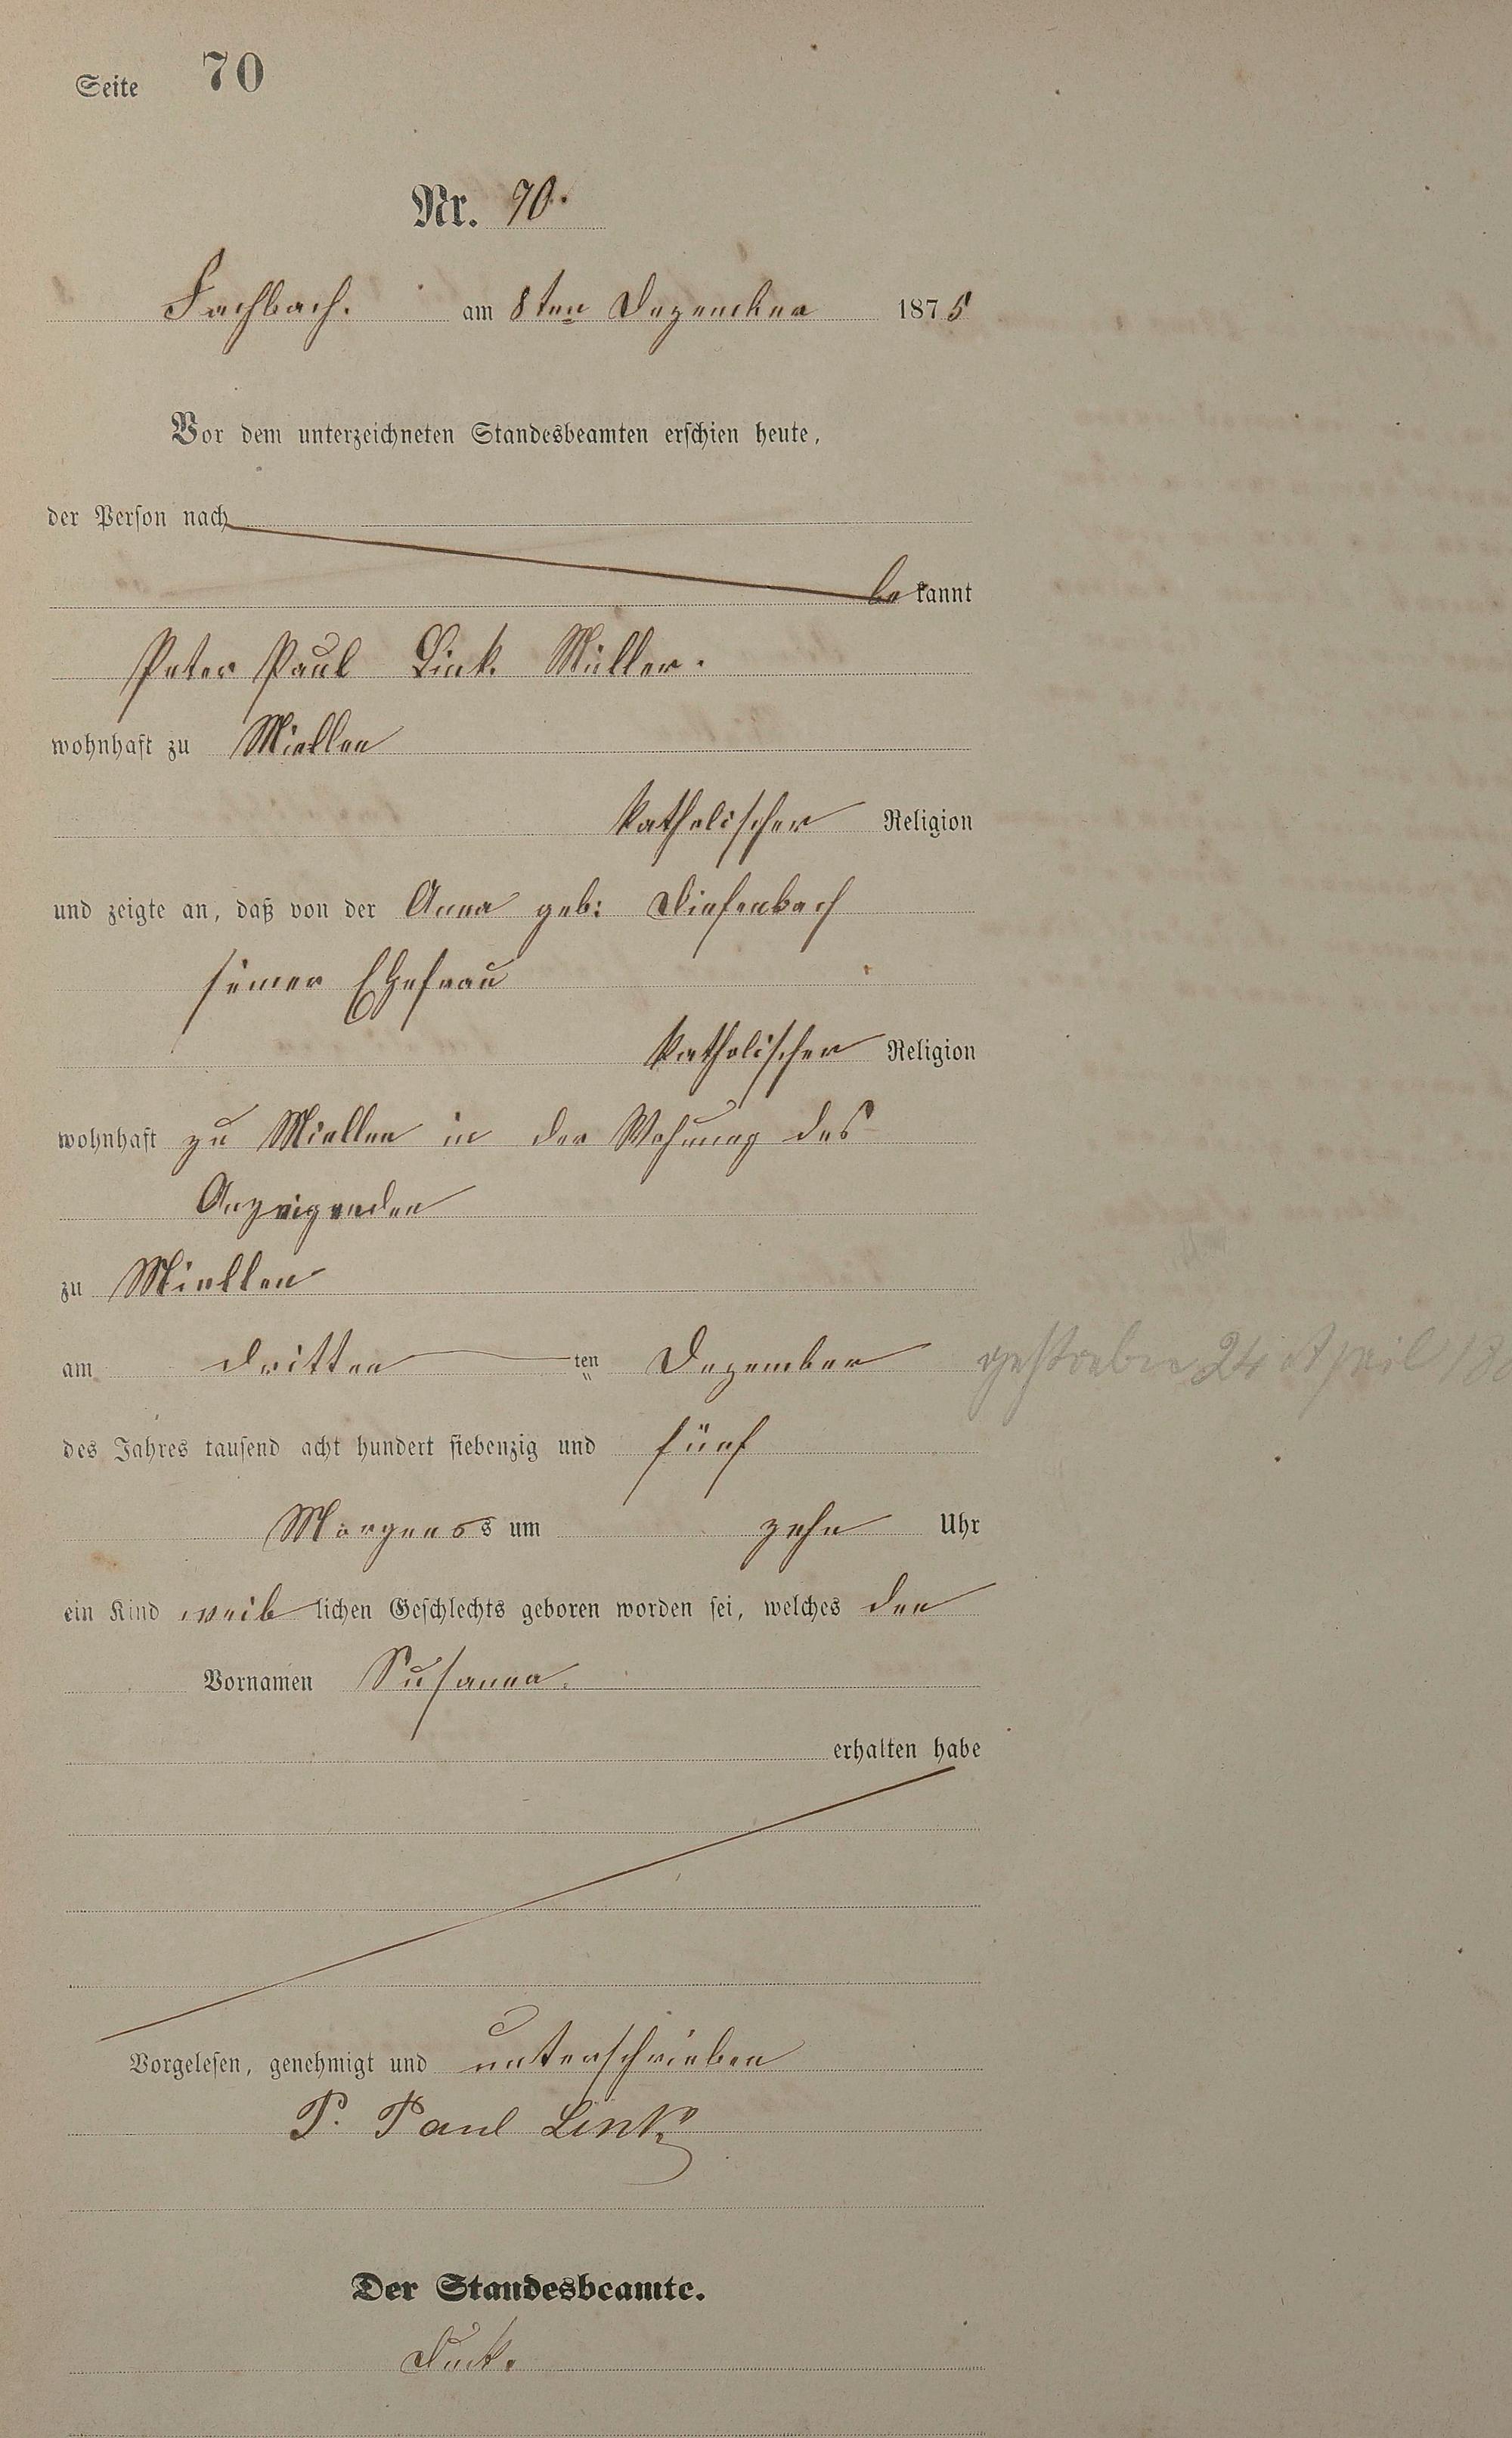 Seite 70
Nr. 70.
Fachbach. am 8ten Dezember 1875
Vor dem unterzeichneten Standesbeamten erschien heute,
der Person nach
be kannt
Peter Paul Link. Müller.
wohnhaft zu Miellen
katholischer Religion
und zeigte an, daß von der Anna geb: Diefenbach
seiner Ehefrau
katholischer Religion
wohnhaft zu Miellen in der Wohnung des
Anzeigenden
zu Miellen
am dritten ten Dezember gestorben 24 April 18
des Jahres tausend acht hundert siebenzig und fünf
Morgens um zehn Uhr
ein Kind weib lichen Geschlechts geboren worden sei, welches den
Vornamen Susanna.
erhalten habe
Vorgelesen, genehmigt und unterschrieben
P. Paul Link
Der Standesbeamte.